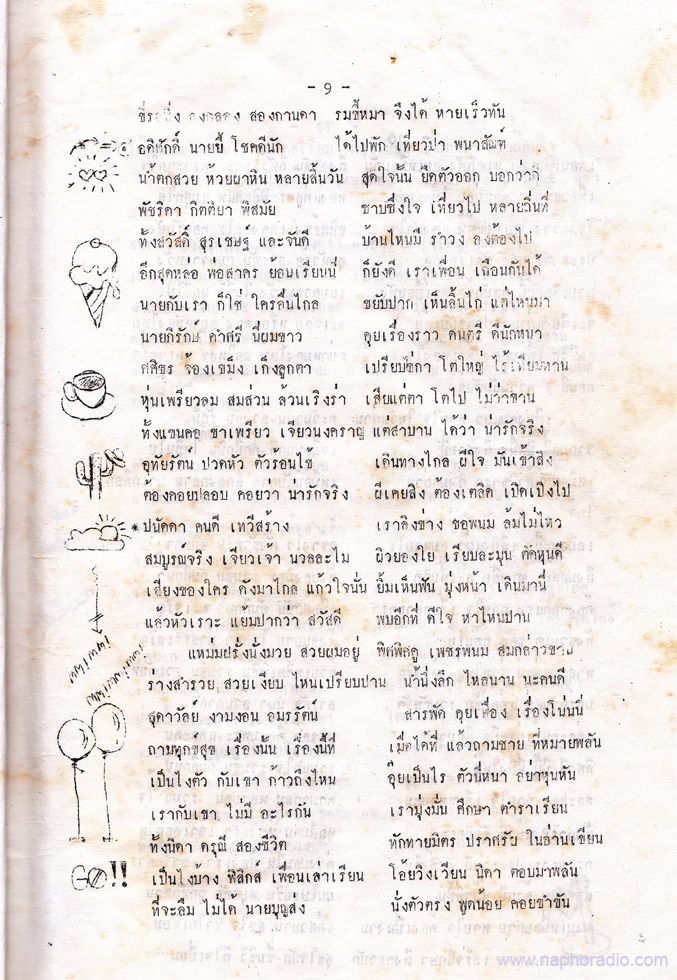 - 9 -
สองกานดา รมขี้หมา จึงได้ หายเร็วทัน
อดิศักดิ์ นายยี้ โชคดีนัก ได้ไปพัก เที่ยวป่า พนาสัณฑ์
น้ำตกสวย ห้วยผาหิน หลายสิ้นวัน สุดใจนั้น ยืดตัวออก บอกว่าดี
พัชริดา กิตติยา พิสมัย ซาบซึ้งใจ เที่ยวไป หลายถิ่นที่
ทั้งสวัสดิ์ สุรเชษฐ์ และจันดี บ้านไหนมี รำวง ต้องไป
อีกสุดหล่อ พ่อสาคร ย้อนเรียนนี่ ก็ยังดี เราเพื่อน เฉือนกันได้
นายกับเรา ก็ใช่ ใครอื่นไกล ขยับปาก เห็นลิ้นไก่ แต่ไหนมา
นายภิรักษ์ คำศรี นี่ผมขาว อุยเรื่องราว ดนตรี ดีนักหนา
ศศิธร จ้องเขม็ง เก็งลูกตา เปรียบซ่กา โตใหญ่ ไร้เทียมทาน
หุ่นเพรียวลม สมส่วน ล้วนเริงร่า เสียแต่ตา โตไป ไม่ว่าขาน
ทั้งแขนคอ ขาเพรียว เจียวนงคราญ แต่สาบาน ได้ว่า น่ารักจริง
อุทัยรัตน์ ปวดหัว ตัวร้อนไข้ เดินทางไกล ผีใจ มันเข้าสิง
ต้องคอยปลอบ คอยว่า น่ารักจริง ผีเคยสิง ต้องเตลิด เปิดเปิงไป
*ปนัดดา คนดี เทวีสร้าง เราลิงช่าง ขอพนม ล้มไม่ไหว
สมบูรณ์จริง เจียวเจ้า นวลละไม ผิวยองใย เรียบละมุน ตัดหุ่นดี
เสียงของใคร ดังมาไกล แก้วใจนั่น ยิ้มเห็นฟัน มุ่งหน้า เดินมานี่
แล้วหัวเราะ แย้มปากว่า สวัสดี พบอีกที่ ดีใจ หาไหนปาน
แหม่มฝรั่งนั่งมวย สวยผมอยู่ พิศพิศดู เพชรพนม สมกล่าวขาน
ร่างสำรวย สวยเงียบ ไหนเปรียบปาน น้ำนิ่งลึก ไหลนาน นะคนดี
สุดาวัลย์ งามงอน อมรรัตน์ สารพัด อุยเฟื่อง เรื่องโน่นนี่
ถามทุกข์สุข เรื่องนั้น เรื่องนี้ที เมื่อได้ที แล้วถามชาย ที่หมายพลัน
เป็นไงตัว กับเขา ก้าวถึงไหน อุ๊ยเป็นไร ตัวนี่หนา อย่าหุนหัน
เรากับเขา ไม่มี อะไรกัน เรามุ่งมั่น ศึกษา ตำราเรียน
ทั้งนิดา ดรุณี สองชีวิต ทักทายมิตร ปราศรัย ในอ่านเขียน
GO!! เป็นไงบ้าง ฟิสิกส์ เพื่อนเล่าเรียน โอ้ยวิงเวียน นิดา ตอบมาพลัน
ที่จะลืม ไม่ได้ นายบุญส่ง นั่งตัวตรง พูดน้อย คอยขำขัน
www.naphoradio.com